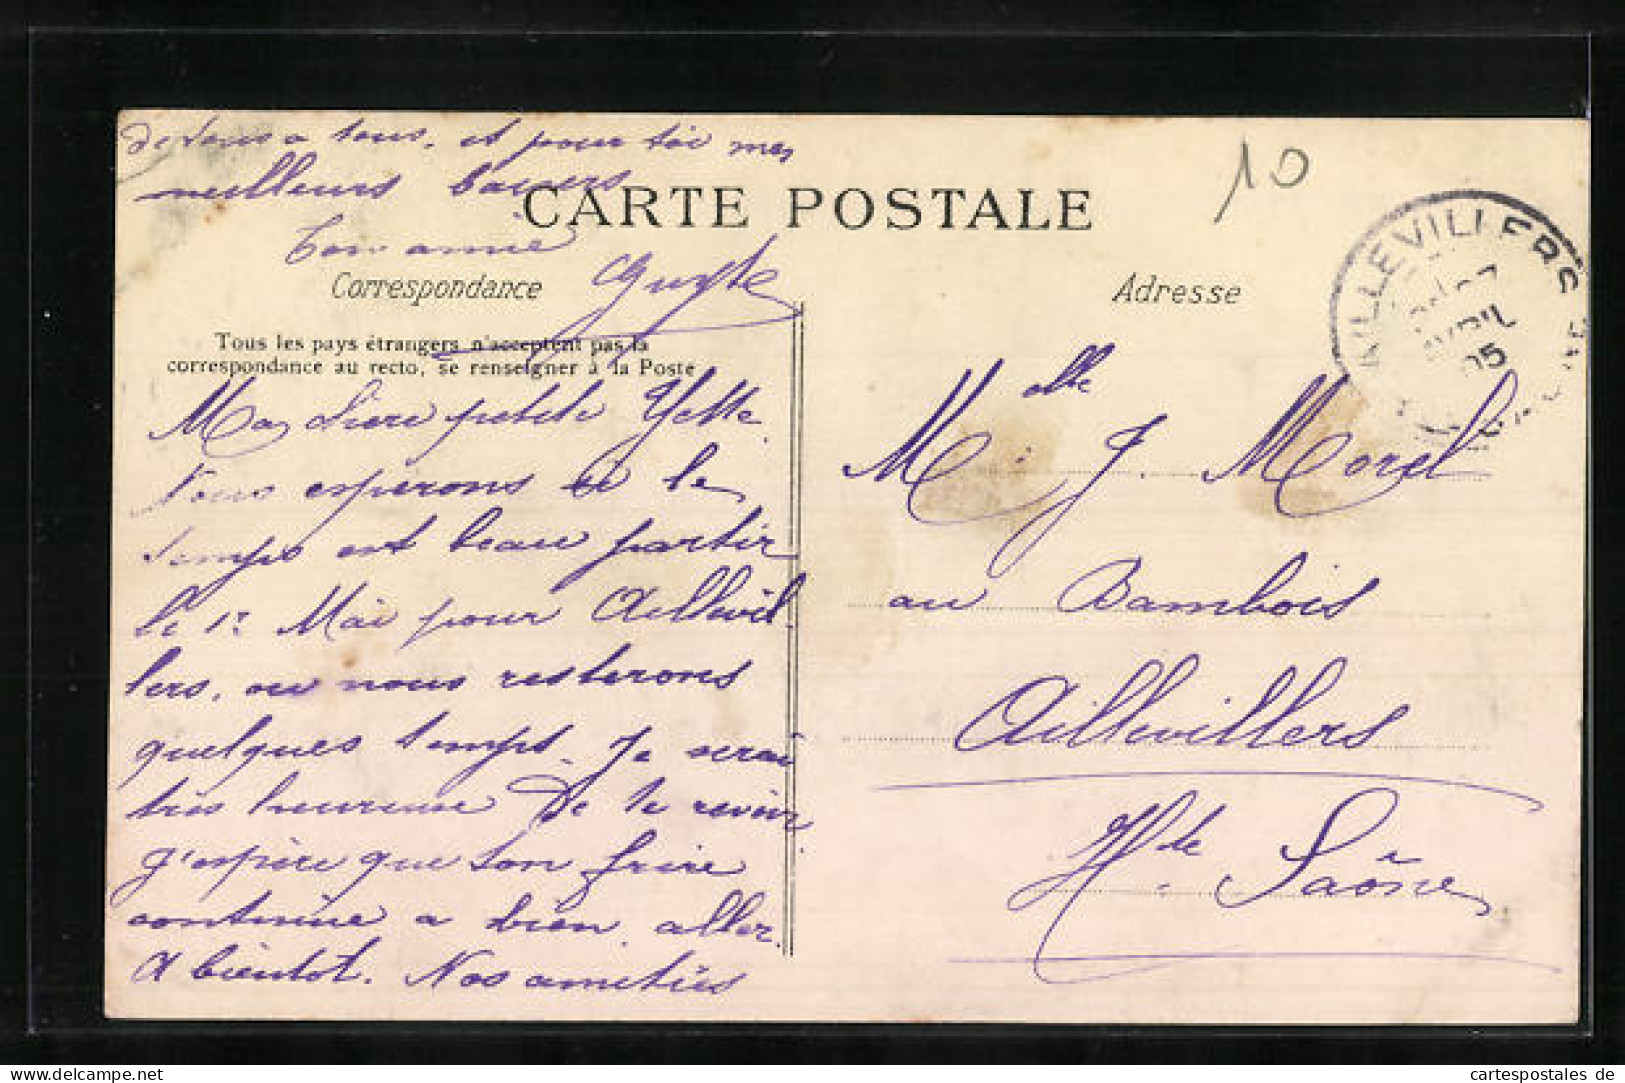 de tous a tous, et pour toi mes
meilleurs baisers
Ton amie
CARTE POSTALE
Correspondance
Tous les pays étrangers n'acceptent pas la
correspondance au recto, se renseigner à la Poste
Ma chère petite Yette
Nous espérons si le
temps est beau partir
le 1r Mai pour Aillevil
lers, ou nous resterons
quelques temps. Je serai
très heureuse De te revoir.
J'espère que ton frère
continue a bien aller.
A bientot. Nos amitiés
10
AILLEVILLERS
AVRIL
05
Adresse
Melle J. Morel
au Bambois
Aillevillers
Hte Saône
cartespostales de